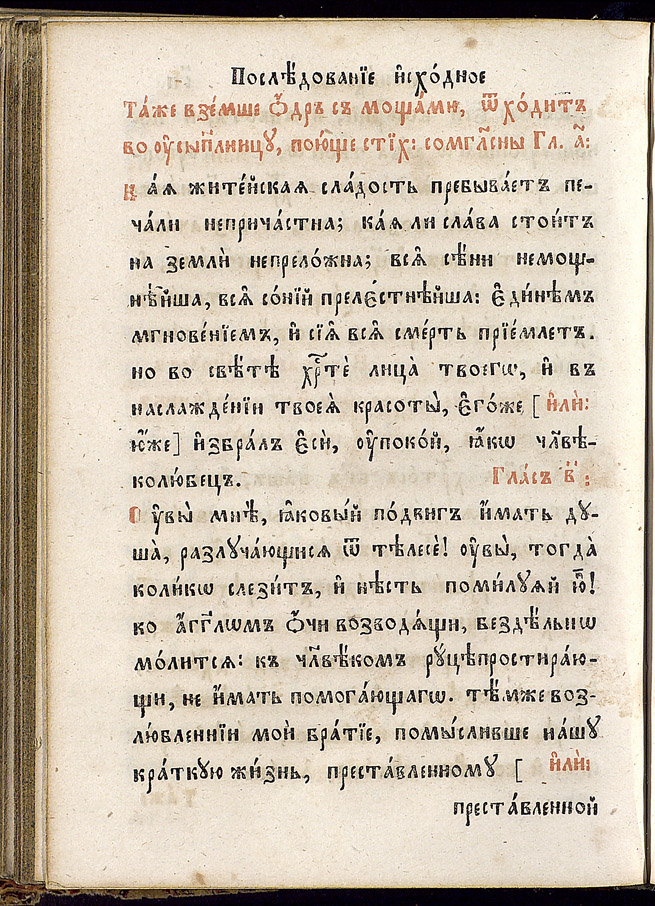 Послѣ́дованїе и҆схо́дное
Та́же взе́мше ѻ҆́дръ съ моща́ми, ѿхо́дитъ
во ᲂу҆сыпⷭ҇лницꙋ, пою́ще стїх: сомгла́сны Гл. а҃:
Ка́ѧ жите́йскаѧ сла́дость пребыва́етъ пе-
ча́ли неприча́стна; ка́ѧ ли сла́ва стои́тъ
на землѝ непрело́жна; всѧ̑ сѣ́ни немощ-
нѣ́йша, всѧ̑ со́нїй преле́стнѣйша: є҆ди́нѣмъ
мгнове́нїемъ, и҆ сїѧ̑ всѧ̑ сме́рть прїе́млетъ.
но во свѣ́тѣ хрⷭ҇тѐ лица̀ твоегѡ̀, и҆ въ
наслажде́нїи твоеѧ̀ красоты̀, є҆го́же [ и҆лѝ:
ю҆́же] и҆збра́лъ є҆сѝ, ᲂу҆поко́й, ꙗ҆́кѡ чл҃вѣ-
колю́бецъ. Гла́съ в҃:
Оу҆вы̀ мнѣ̀, ꙗ҆ковы́й по́двигъ и҆́мать дꙋ-
ша̀, разлꙋча́ющисѧ ѿ тѣлесѐ! ᲂу҆вы̀, тогда̀
коли́кѡ слези́тъ, и҆ нѣ́сть поми́лꙋѧй ю҆̀!
ко а҆́гг҃лѡмъ ѻ҆́чи возводѧ́щи, бездѣ́льнѡ
мо́литсѧ: къ чл҃вѣ́комъ рꙋ́цѣпростира́ю-
щи, не и҆́мать помога́ющагѡ. тѣ́мже воз-
лю́бленнїи моѝ бра́тїе, помы́сливше на́шꙋ
кра́ткꙋю жи́знь, преста́вленномꙋ [ и҆лѝ:
преста́вленной